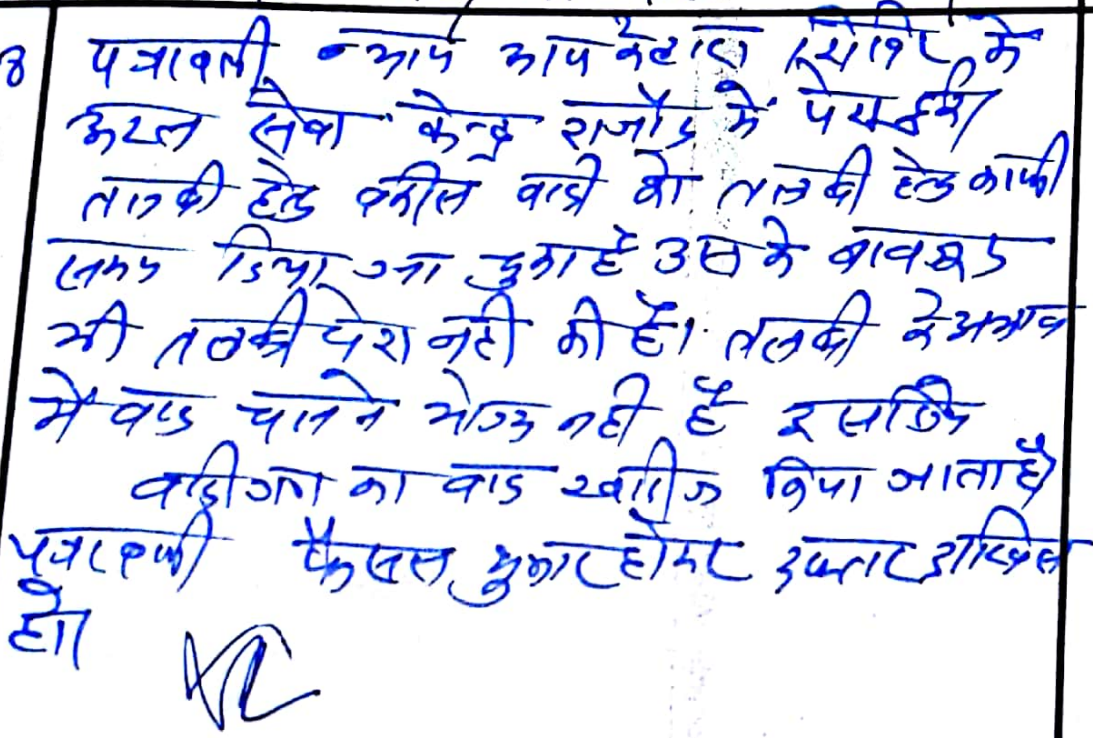 8 पत्रावली न्याय आपके द्वारा शिविर में
अटल सेवा केन्द्र राजोड में पेश हुयी
तलबी हेतु वकील वादी को तलबी हेतु काफी
समय दिया जा चुका है उसके बावजूद
भी तलबी पेश नही की है। तलबी के अभाव
में वाद चलने योग्य नही है इसलिए
वादीगण का वाद खारीज किया जाता है
पत्रावली फैसल शुमार होकर दफ्तर दाखिल
हो।